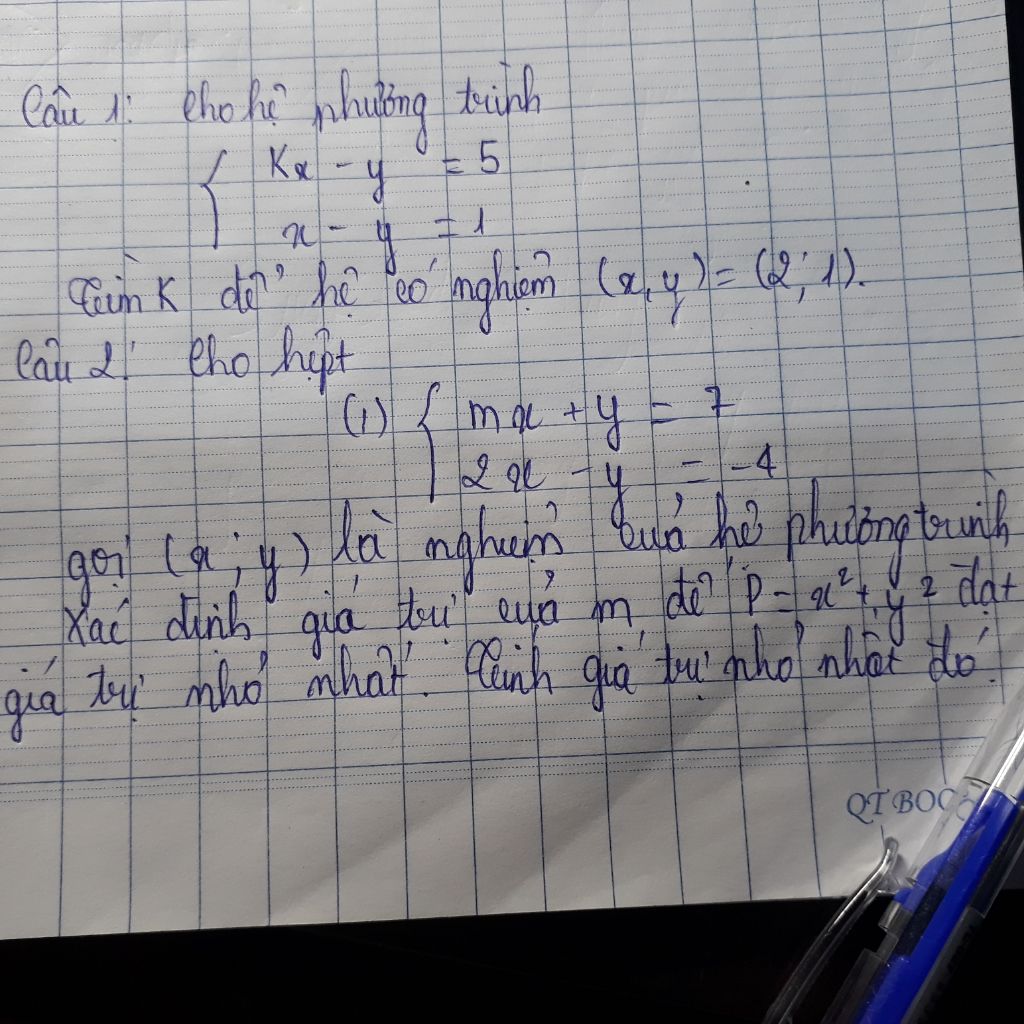 Câu 1: Cho hệ phương trình
{ Kx - y = 5
x - y = 1
Tìm K để hệ có nghiệm (x, y) = (2; 1).
Câu 2: Cho hệpt
(1) { mx + y = 7
2x - y = -4
gọi (x; y) là nghiệm của hệ phương trình
Xác định giá trị của m để P = x² + y² đạt
giá trị nhỏ nhất. Tính giá trị nhỏ nhất đó.